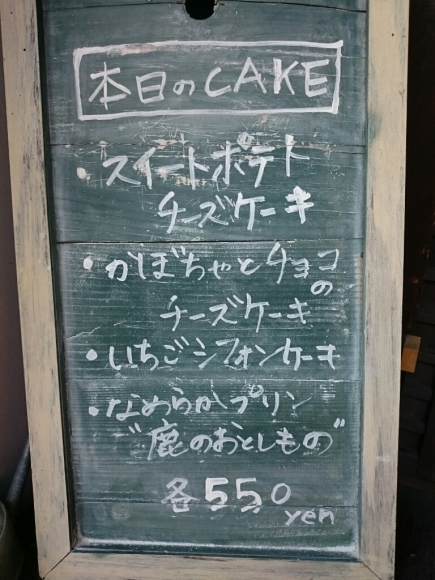 本日のCAKE
・スイートポテト
チーズケーキ
・かぼちゃとチョコの
チーズケーキ
・いちごシフォンケーキ
・なめらかプリン
"鹿のおとしもの"
各550yen